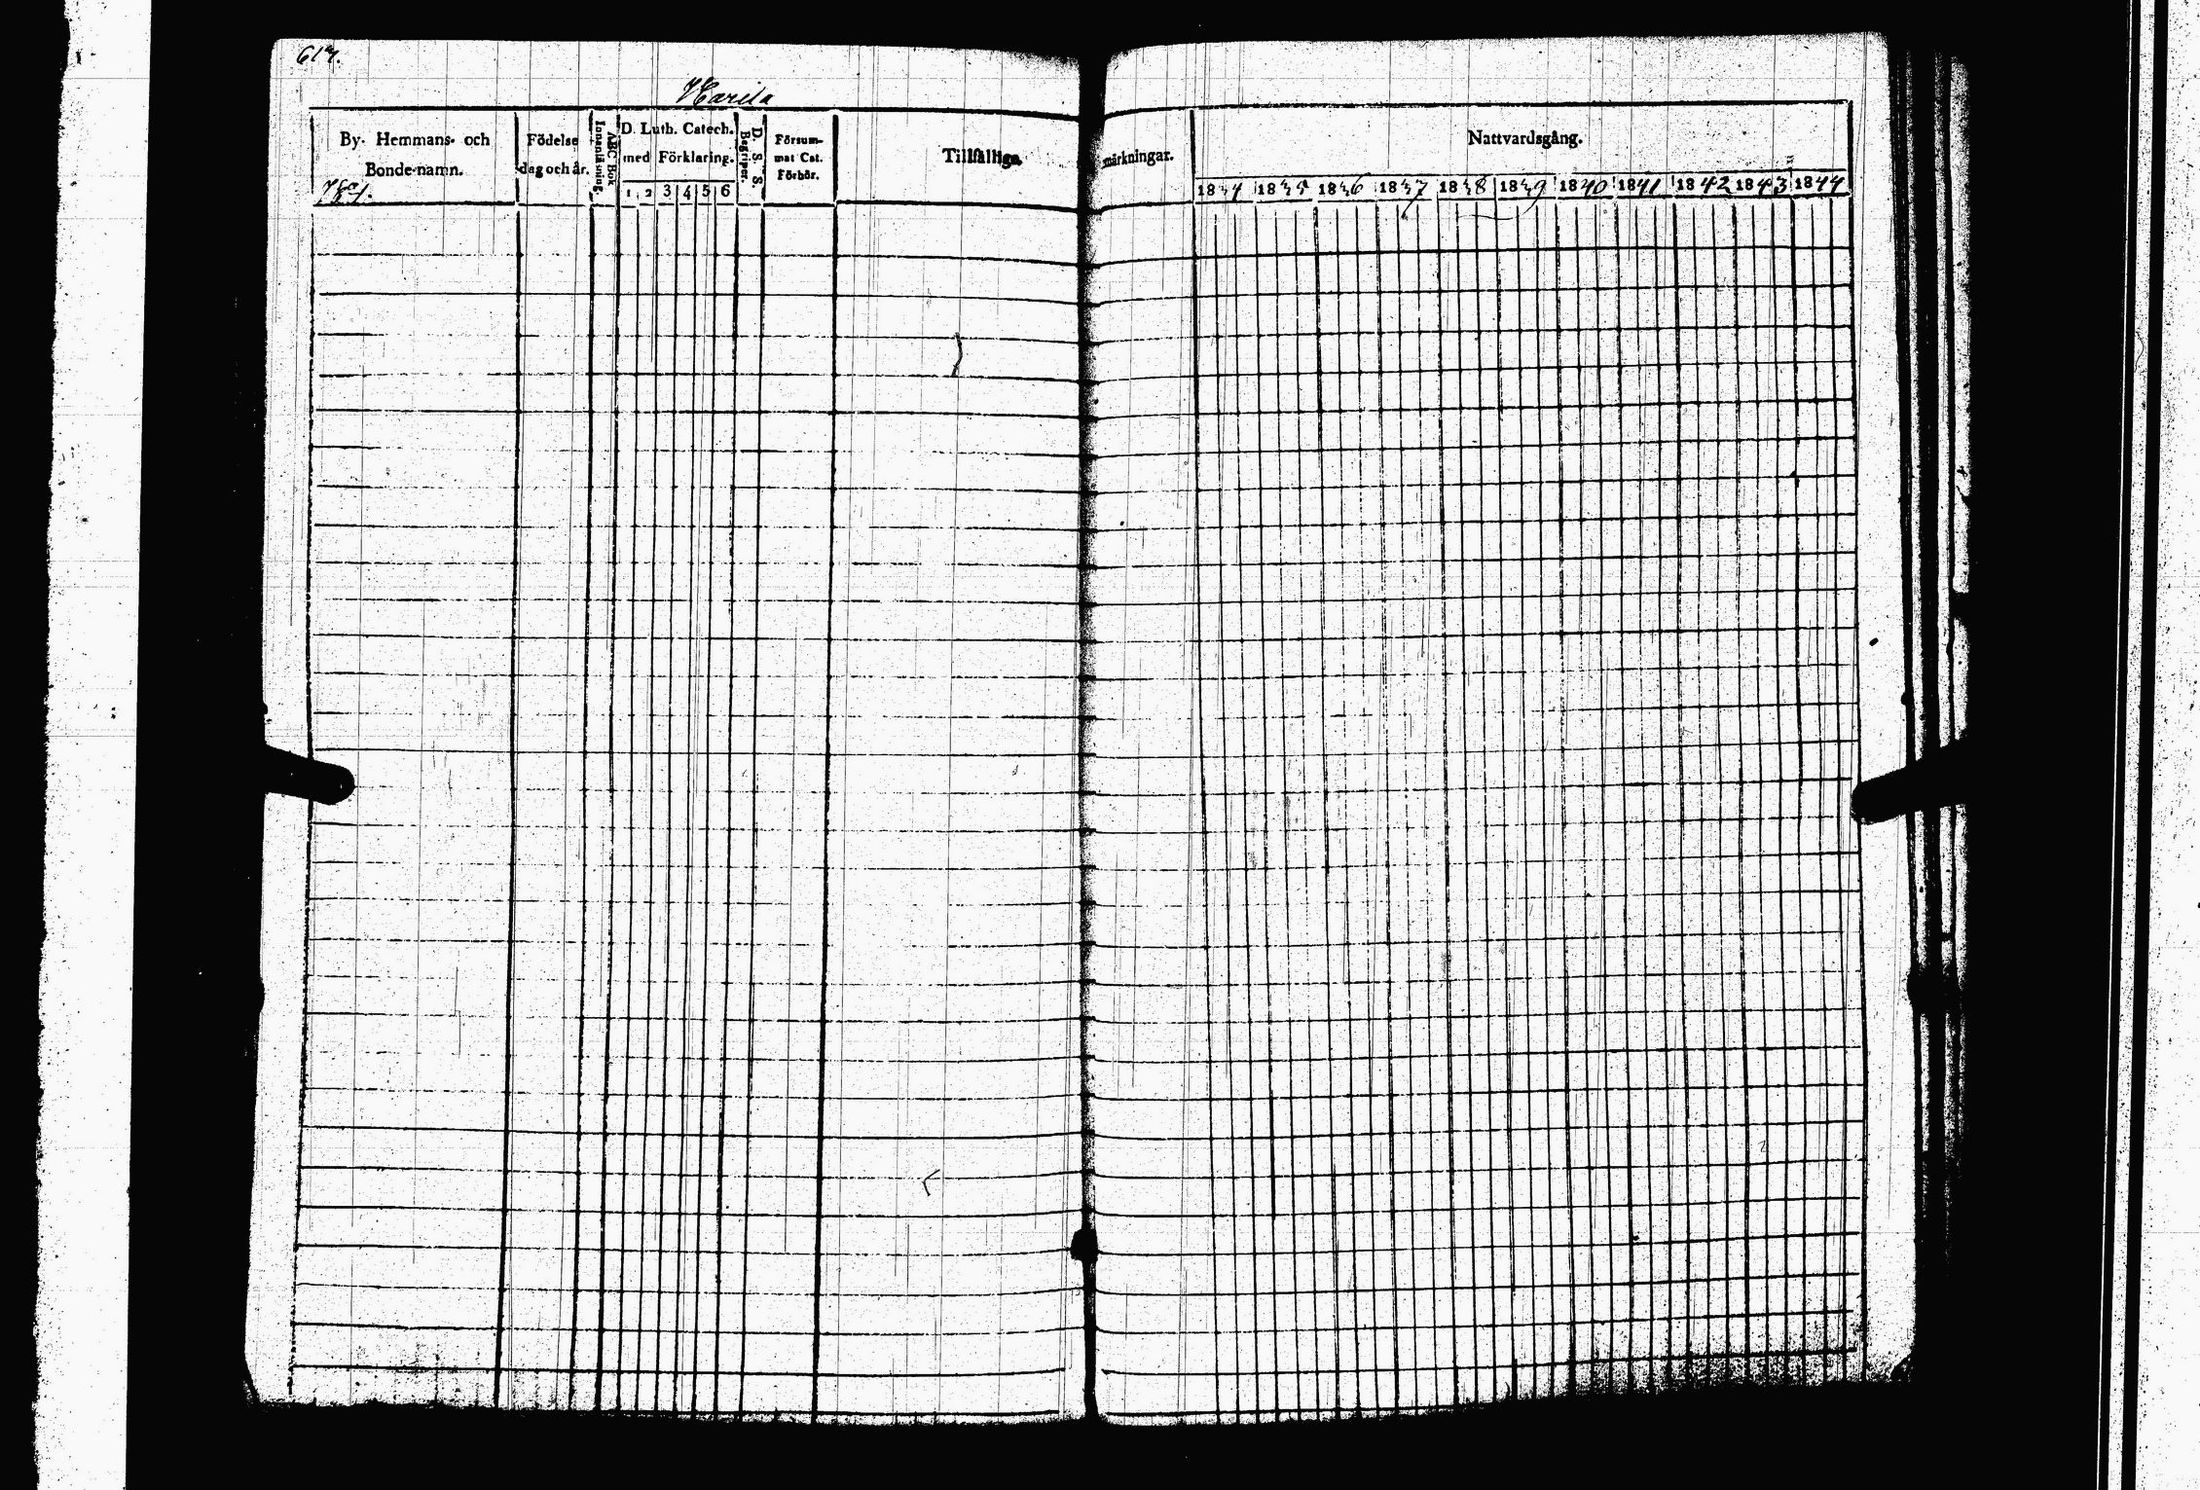 617.
Harila
By- Hemmans- och Bonde-namn.
Födelse dag och år.
Innanläsning.
ABC Bok
D. Luth. Catech. med Förklaring.
1 2 3 4 5 6
D. S. S.
Begriper.
Försum-mat Cat. Förhör.
Tillfälliga
märkningar.
Nattvardsgång.
1834 1835 1836 1837 1838 1839 1840 1841 1842 1843 1844